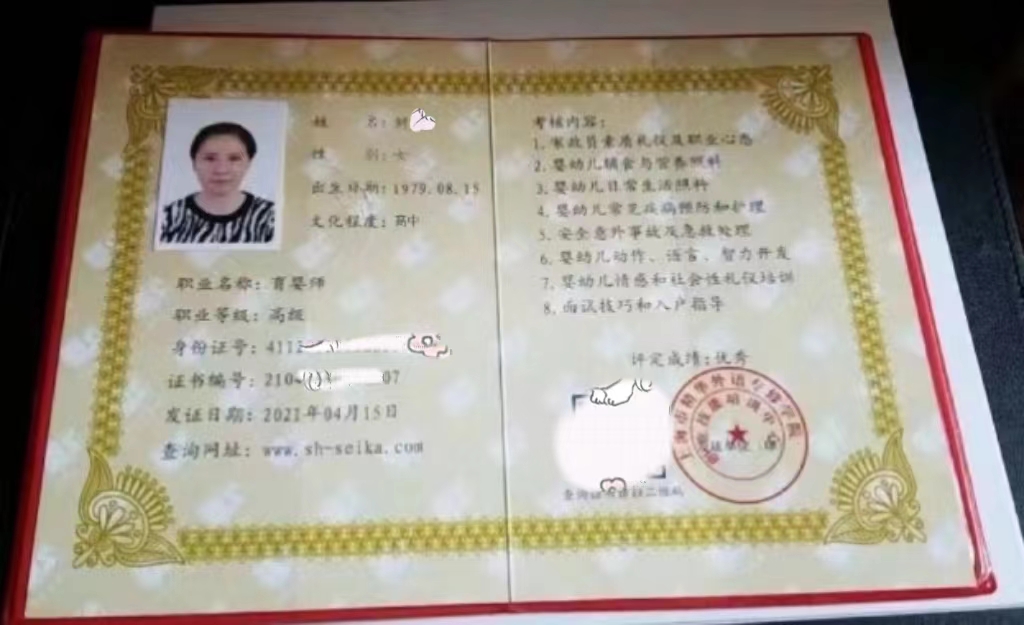 姓 名：
性 别：女
出生日期：1979.08.15
文化程度：高中
职业名称：育婴师
职业等级：高级
身份证号：411
证书编号：210 07
发证日期：2021年04月15日
查询网址：www.sh-seika.com
考核内容：
1、家政员素质礼仪及职业心态
2、婴幼儿辅食与营养照料
3、婴幼儿日常生活照料
4、婴幼儿常见疾病预防和护理
5、安全意外事故及急救处理
6、婴幼儿动作、语言、智力开发
7、婴幼儿情感和社会性礼仪培训
8、面试技巧和入户指导
评定成绩：优秀
上海市精华外语专修学院
技能培训中心
查询证书请扫二维码